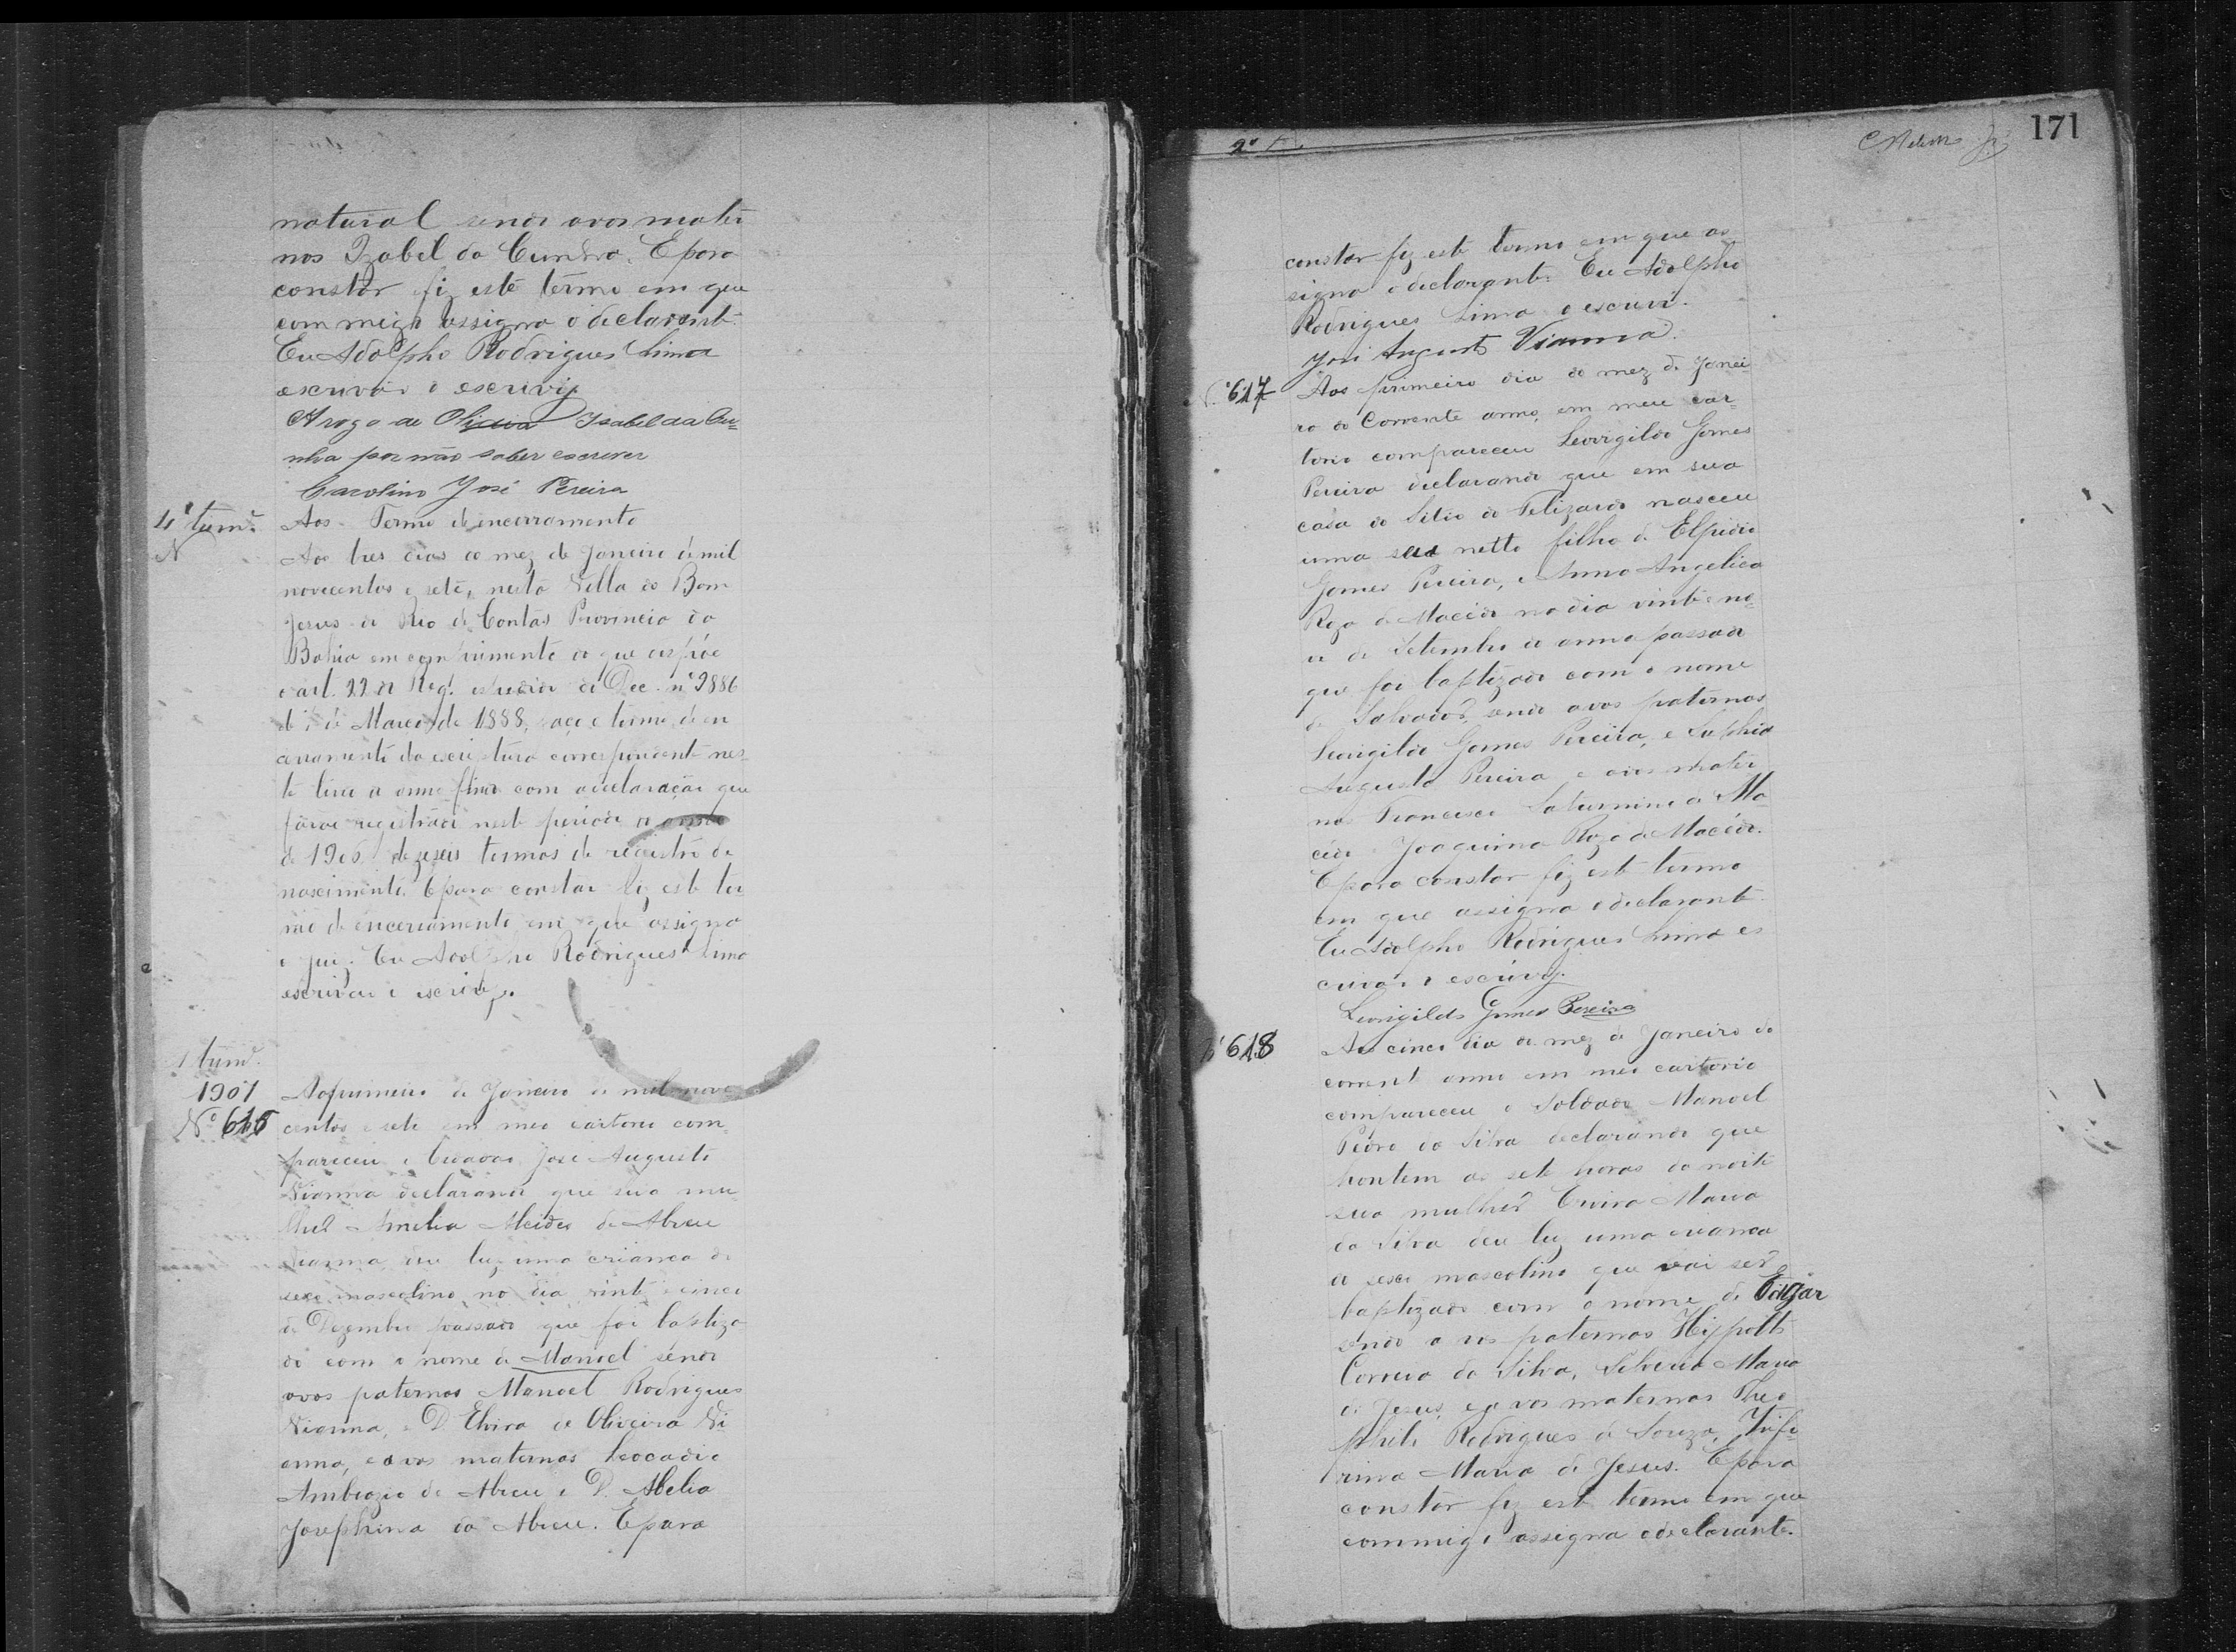 natural sendo avos mater
nos Izabel da Cunha. E para
constar fiz este termo em que
commigo assigna o declarante.
Eu Adolpho Rodrigues Lima
escrivão o escrivy
Arogo de Isabel da Cu=
nha por não saber escrever
Carolino José Pereira
Aos. Termo de encerramento
N
Aos tres dias do mez de Janeiro de mil
novecentos e sete, nesta Villa do Bom
Jesus do Rio de Contas Provincia da
Bahia em comprimento do que dispõe
o art. 22 do Reg. do Dec. nº 9886
de 7 de Março de 1888, faço o termo de en
cerramento da escriptura correspondente nes
te livro o anno findo com a declaração que
registrado neste periodo do anno
de 1906 dezeseis termos de registro de
nascimento. E para constar fiz este ter
mo de encerramento em que assigna
o juiz. Eu Adolpho Rodrigues Lima
escrivão o escrivy.
1907
Nº 616
Ao primeiro de Janeiro de mil nove
centos e sete em meu cartorio com
pareceu o Cidadão José Augusto
Vianna declarando que sua mu
lher Amelia Alcides de Abreu
Vianna deu luz uma criança do
sexo masculino no dia vinte e cinco
de Dezembro passado que foi baptiza
do com o nome de Manoel sendo
avos paternos Manoel Rodrigues
Vianna, e D. Elvira de Oliveira Vi
anna, e avos maternos Leocadio
Ambrozio de Abreu e D. Abelia
Josephina de Abreu. E para
171
constar fiz este termo em que as
signa o declarante. Eu Adolpho
Rodrigues Lima o escrivi.
José Augusto Vianna.
617
Aos primeiro dia do mez de Janei
ro do Corrente anno, em meu car
torio compareceu Leovigildo Gomes
Pereira declarando que em sua
casa do Sitio do Felizardo nasceu
uma seu netto filho de Elpidio
Gomes Pereira, e Anna Angelica
Roza de Macêdo no dia vinte e no
ve de Setembro do anno passado
que foi baptizado com o nome
de Salvador, sendo avos paternos
Leovigildo Gomes Pereira, e Sophia
Augusta Pereira e avos mater
nos Francisco Saturnino de Ma
cêdo e Joaquina Roza de Macêdo.
E para constar fiz este termo
em que assigna o declarante.
Eu Adolpho Rodrigues Lima es
crivão o escrivy.
Leovigildo Gomes Pereira
618
Aos cinco dia do mez de Janeiro do
corrente anno em meu cartorio
compareceu o Soldado Manoel
Pedro da Silva declarando que
hontem as sete horas da noite
sua mulher Maria
da Silva deu luz uma criança
do sexo mascolino que vai ser
baptizado com o nome de Edgar
sendo avos paternos Hippolito
Correia da Silva, Silveria Maria
de Jesus, e avos maternos Theo
philo Rodrigues de Souza,
rina Maria de Jesus. E para
constar fiz este termo em que
commigo assigna o declarante.